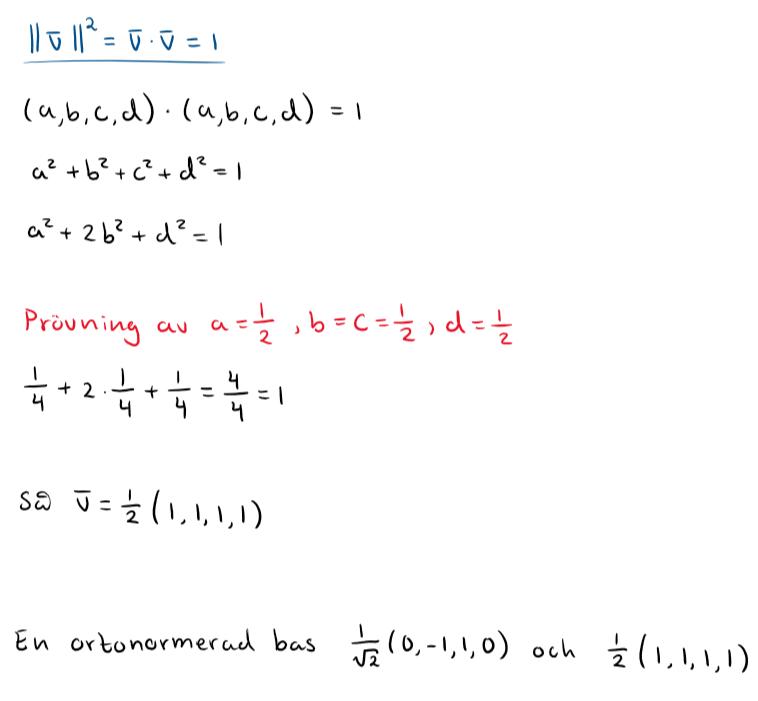 ||v̄||² = v̄ · v̄ = 1
(a,b,c,d) · (a,b,c,d) = 1
a² + b² + c² + d² = 1
a² + 2b² + d² = 1
Prövning av a = 1/2 , b = c = 1/2 , d = 1/2
1/4 + 2 · 1/4 + 1/4 = 4/4 = 1
Så v̄ = 1/2 (1,1,1,1)
En ortonormerad bas 1/√2 (0,-1,1,0) och 1/2 (1,1,1,1)